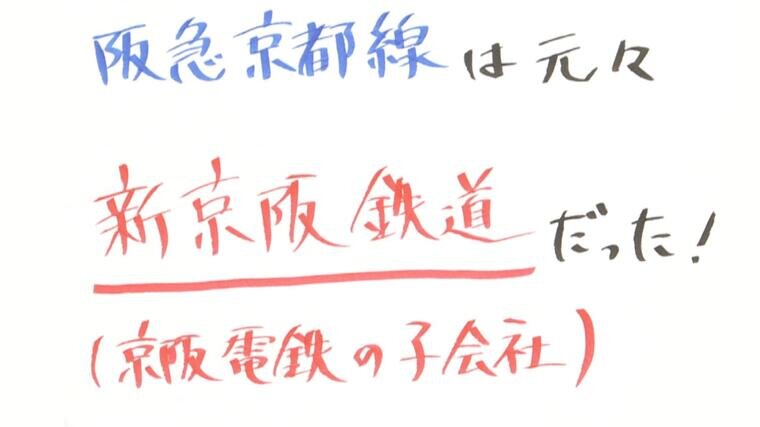 阪急京都線は元々
新京阪鉄道だった!
(京阪電鉄の子会社)